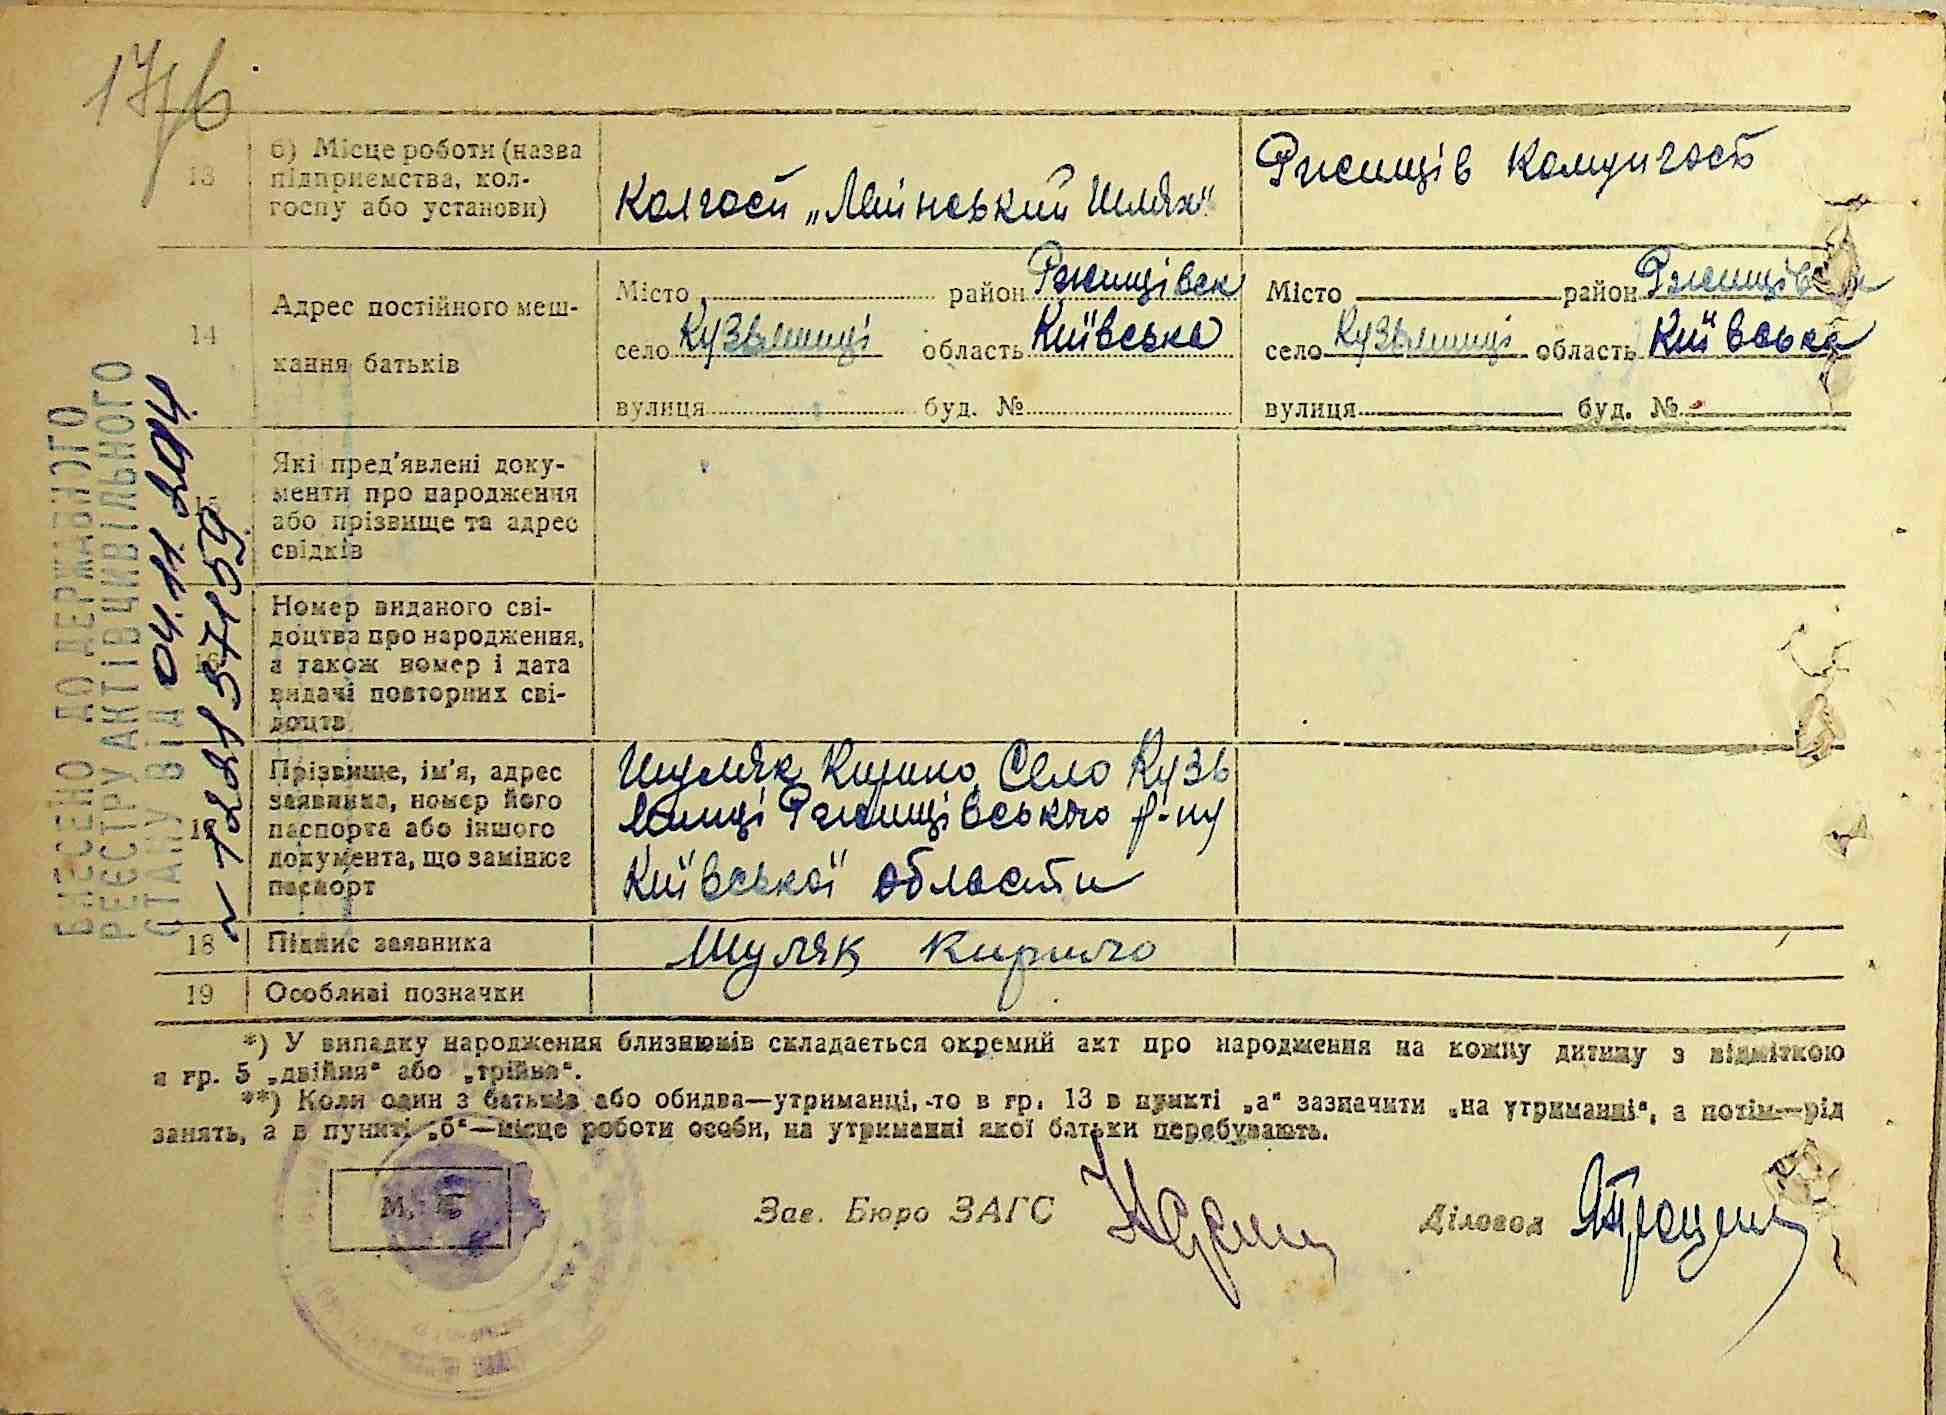 13
б) Місце роботи (назва
підприємства, кол-
госпу або установи)
Колгосп „Ленінський Шлях"
Ржищів
14
Адрес постійного меш-
кання батьків
Місто район Ржищівськ
село Кузьминці область Київська
вулиця буд. №
Місто район Ржищівськ
село Кузьминці область Київська
вулиця буд. №
15
Які пред'явлені доку-
менти про народження
або прізвище та адрес
свідків
16
Номер виданого сві-
доцтва про народження,
а також номер і дата
видачі повторних сві-
доцтв
17
Прізвище, ім'я, адрес
заявника, номер його
паспорта або іншого
документа, що замінює
паспорт
Шуляк Кирило Село Кузь
минці Ржищівського р-ну
Київської области
18
Підпис заявника
Шуляк Кирило
19
Особливі позначки
*) У випадку народження близнюків складається окремий акт про народження на кожну дитину з відміткою
в гр. 5 „двійня" або „трійня".
**) Коли один з батьків або обидва—утриманці, -то в гр. 13 в пункті „а" зазначити „на утриманні", а потім—рід
занять, а в пункті „б"—місце роботи особи, на утриманні якої батьки перебувають.
М. П.
Зав. Бюро ЗАГС
Діловод
ВНЕСЕНО ДО ДЕРЖАВНОГО
РЕЄСТРУ АКТІВ ЦИВІЛЬНОГО
СТАНУ ВІД 04.11.2014